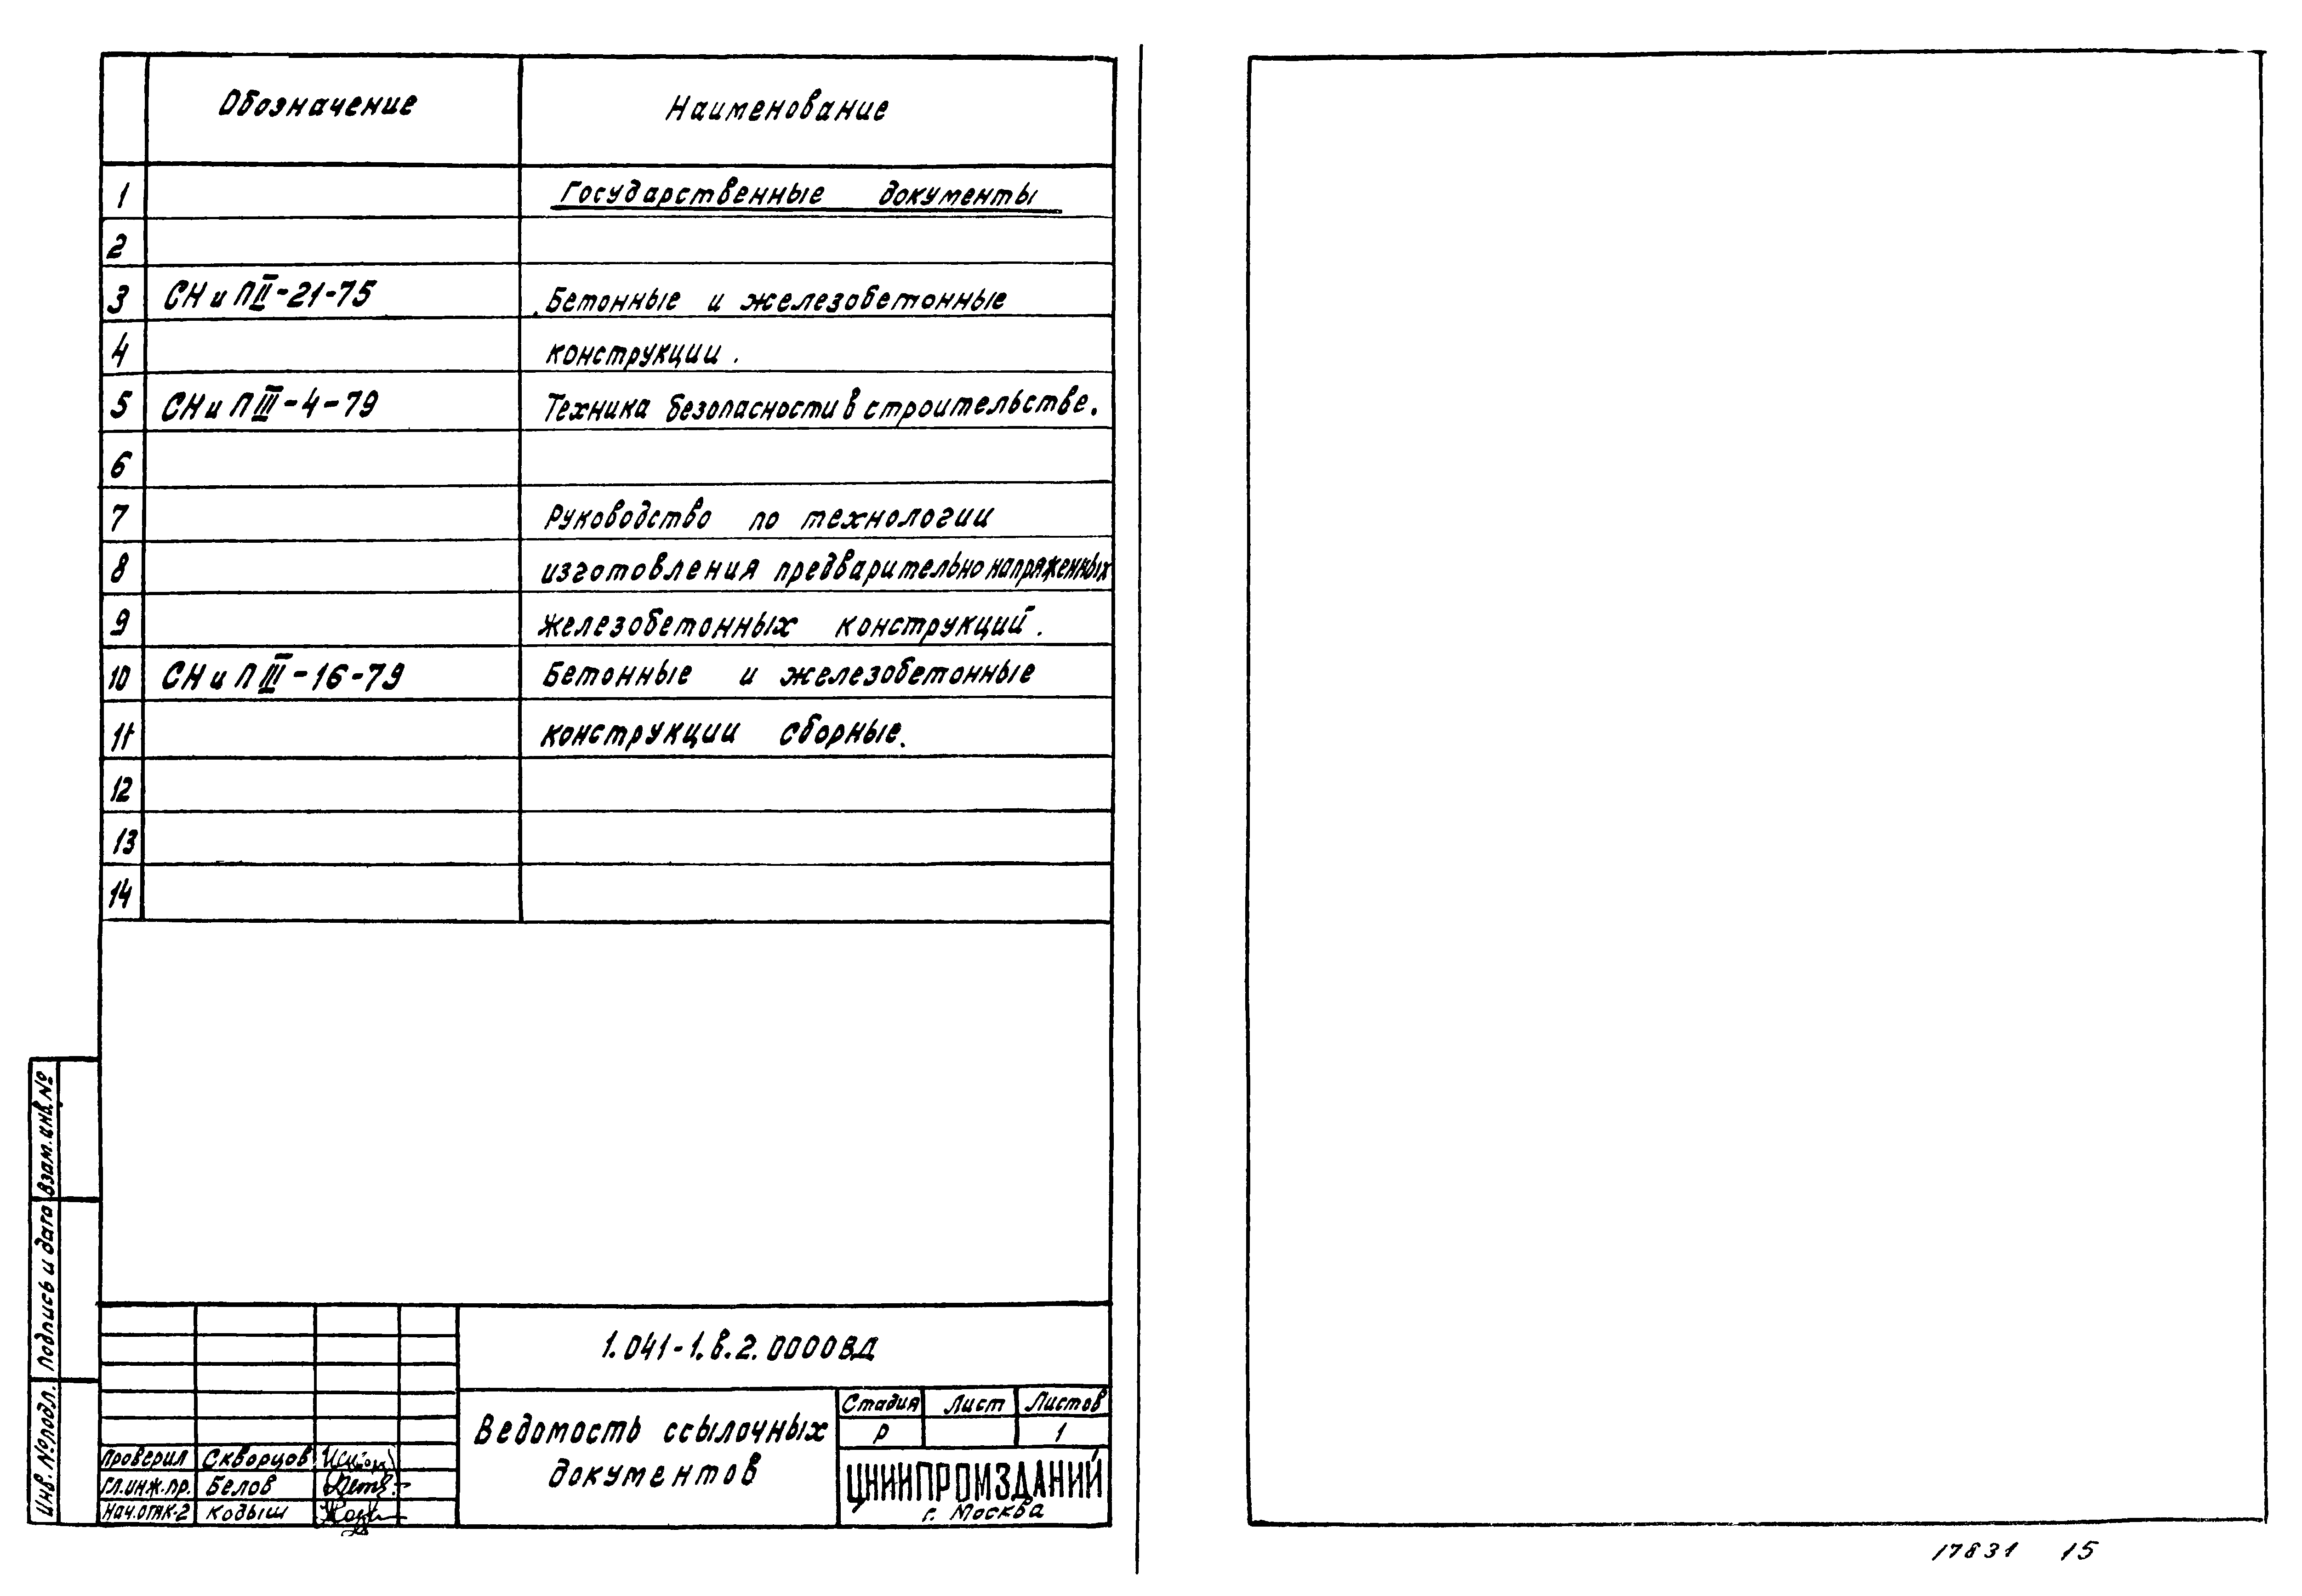 Обозначение Наименование
1 Государственные документы
2
3 СН и П II-21-75 Бетонные и железобетонные
4 конструкции.
5 СН и П III-4-79 Техника безопасности в строительстве.
6
7 Руководство по технологии
8 изготовления предварительно напряженных
9 железобетонных конструкций.
10 СН и П III-16-79 Бетонные и железобетонные
11 конструкции сборные.
12
13
14
Взам. инв. №
Подпись и дата
Инв. № подл.
1.041-1.в.2.0000ВД
Ведомость ссылочных
документов
Стадия Лист Листов
Р 1
ЦНИИПРОМЗДАНИЙ
г. Москва
Проверил Скворцов
Гл.инж.пр. Белов
Нач.отк-2 Кодыш
17831 15